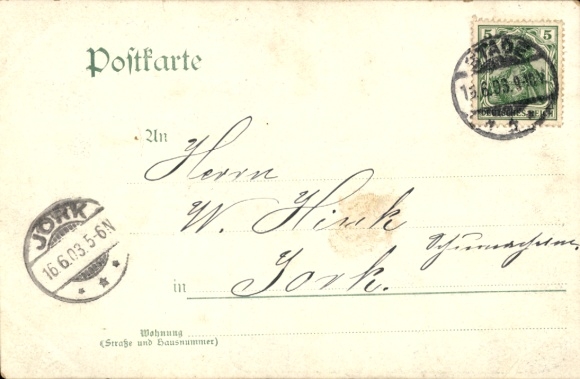 Postkarte
5 5
STADE
16.6.03. 9-10V.
DEUTSCHES REICH
An
Herrn
W. Hink
in Jork.
JORK
16.6.03.5-6N
Wohnung
(Straße und Hausnummer)